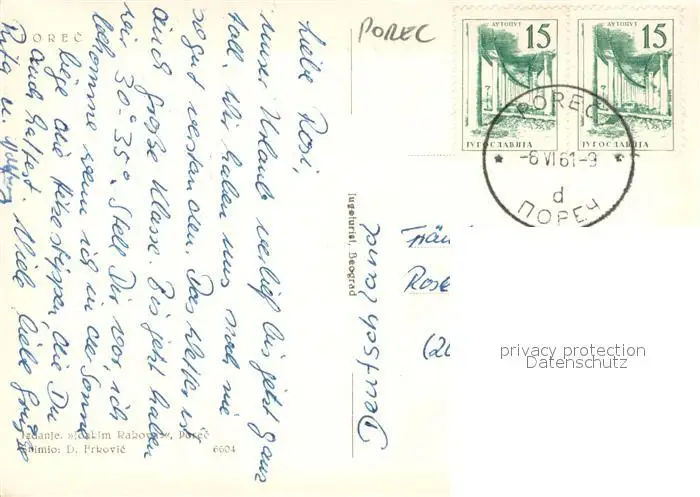 POREČ
POREC
Liebe Rosi,
unser Urlaub verlief bis jetzt ganz
toll. Wir haben uns noch nie
so gut verstanden. Das Wetter ist
auch große Klasse. Bis jetzt haben
wir 30°-35°. Stell Dir vor, ich
bekomme wenn ich in der Sonne
liege die Hitze
auch Viele liebe Grüße
u.
Izdanje: »Joakim Rakovac«, Poreč
Snimio: D. Frković 6604
Jugoturist, Beograd
АУТОПУТ
15
ЈУГОСЛАВИЈА
АУТОПУТ
15
ЈУГОСЛАВИЈА
POREČ
-6 VI 61-9
d
ПОРЕЧ
privacy protection
Datenschutz